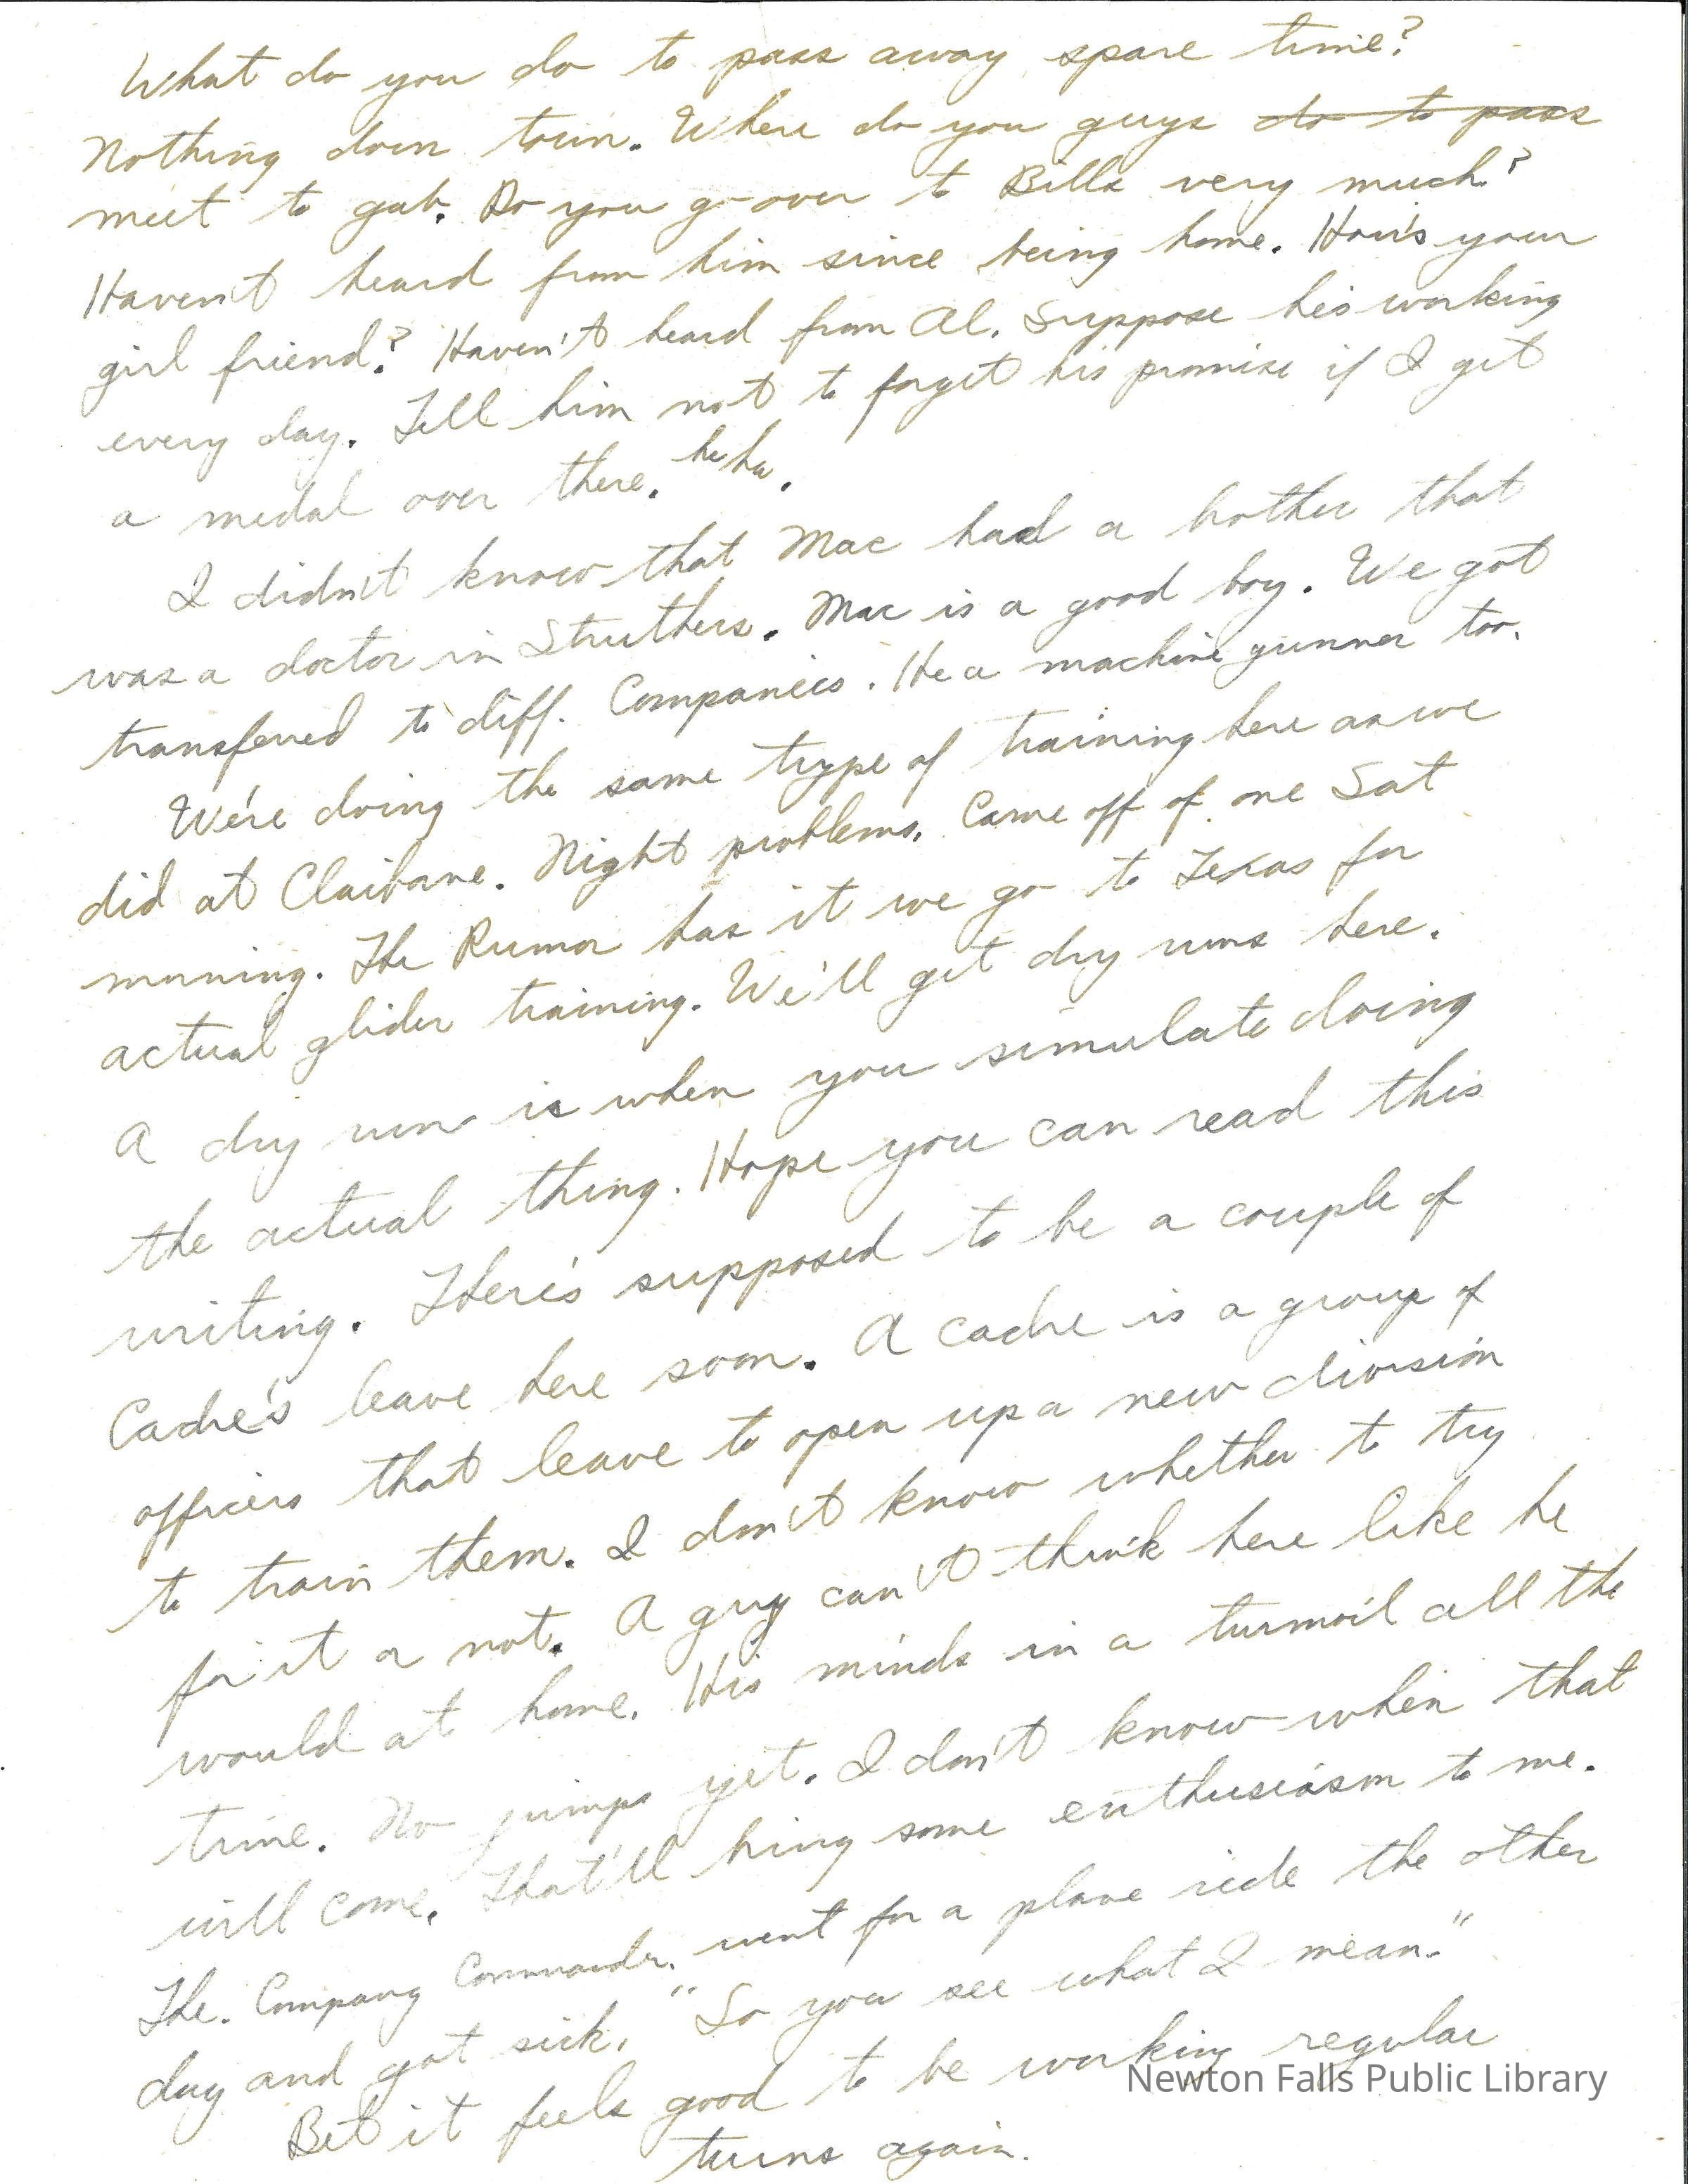 What do you do to pass away spare time?
Nothing down town. Where do you guys do to pass
meet to gab. Do you go over to Bills very much?
Haven't heard from him since being home. How's your
girl friend? Haven't heard from Al. Suppose he's working
every day. Tell him not to forget his promise if I get
a medal over there. he ha.
I didn't know that Mac had a brother that
was a doctor in Struthers. Mac is a good boy. We got
transferred to diff. Companies. He a machine gunner too.
We're doing the same type of training here as we
did at Claiborne. Night problems. Came off of one Sat
morning. The Rumor has it we go to Texas for
actual glider training. We'll get dry runs here.
A dry run is when you simulate doing
the actual thing. Hope you can read this
writing. There's supposed to be a couple of
Cadre's leave here soon. A cadre is a group of
officers that leave to open up a new division
to train them. I don't know whether to try
for it or not. A guy can't think here like he
would at home. His minds in a turmoil all the
time. No jumps yet. I don't know when that
will come. That'll bring some enthusiasm to me.
The. Company Commander. went for a plane ride the other
day and got sick. "So you see what I mean."
Bet it feels good to be working regular
turns again.
Newton Falls Public Library